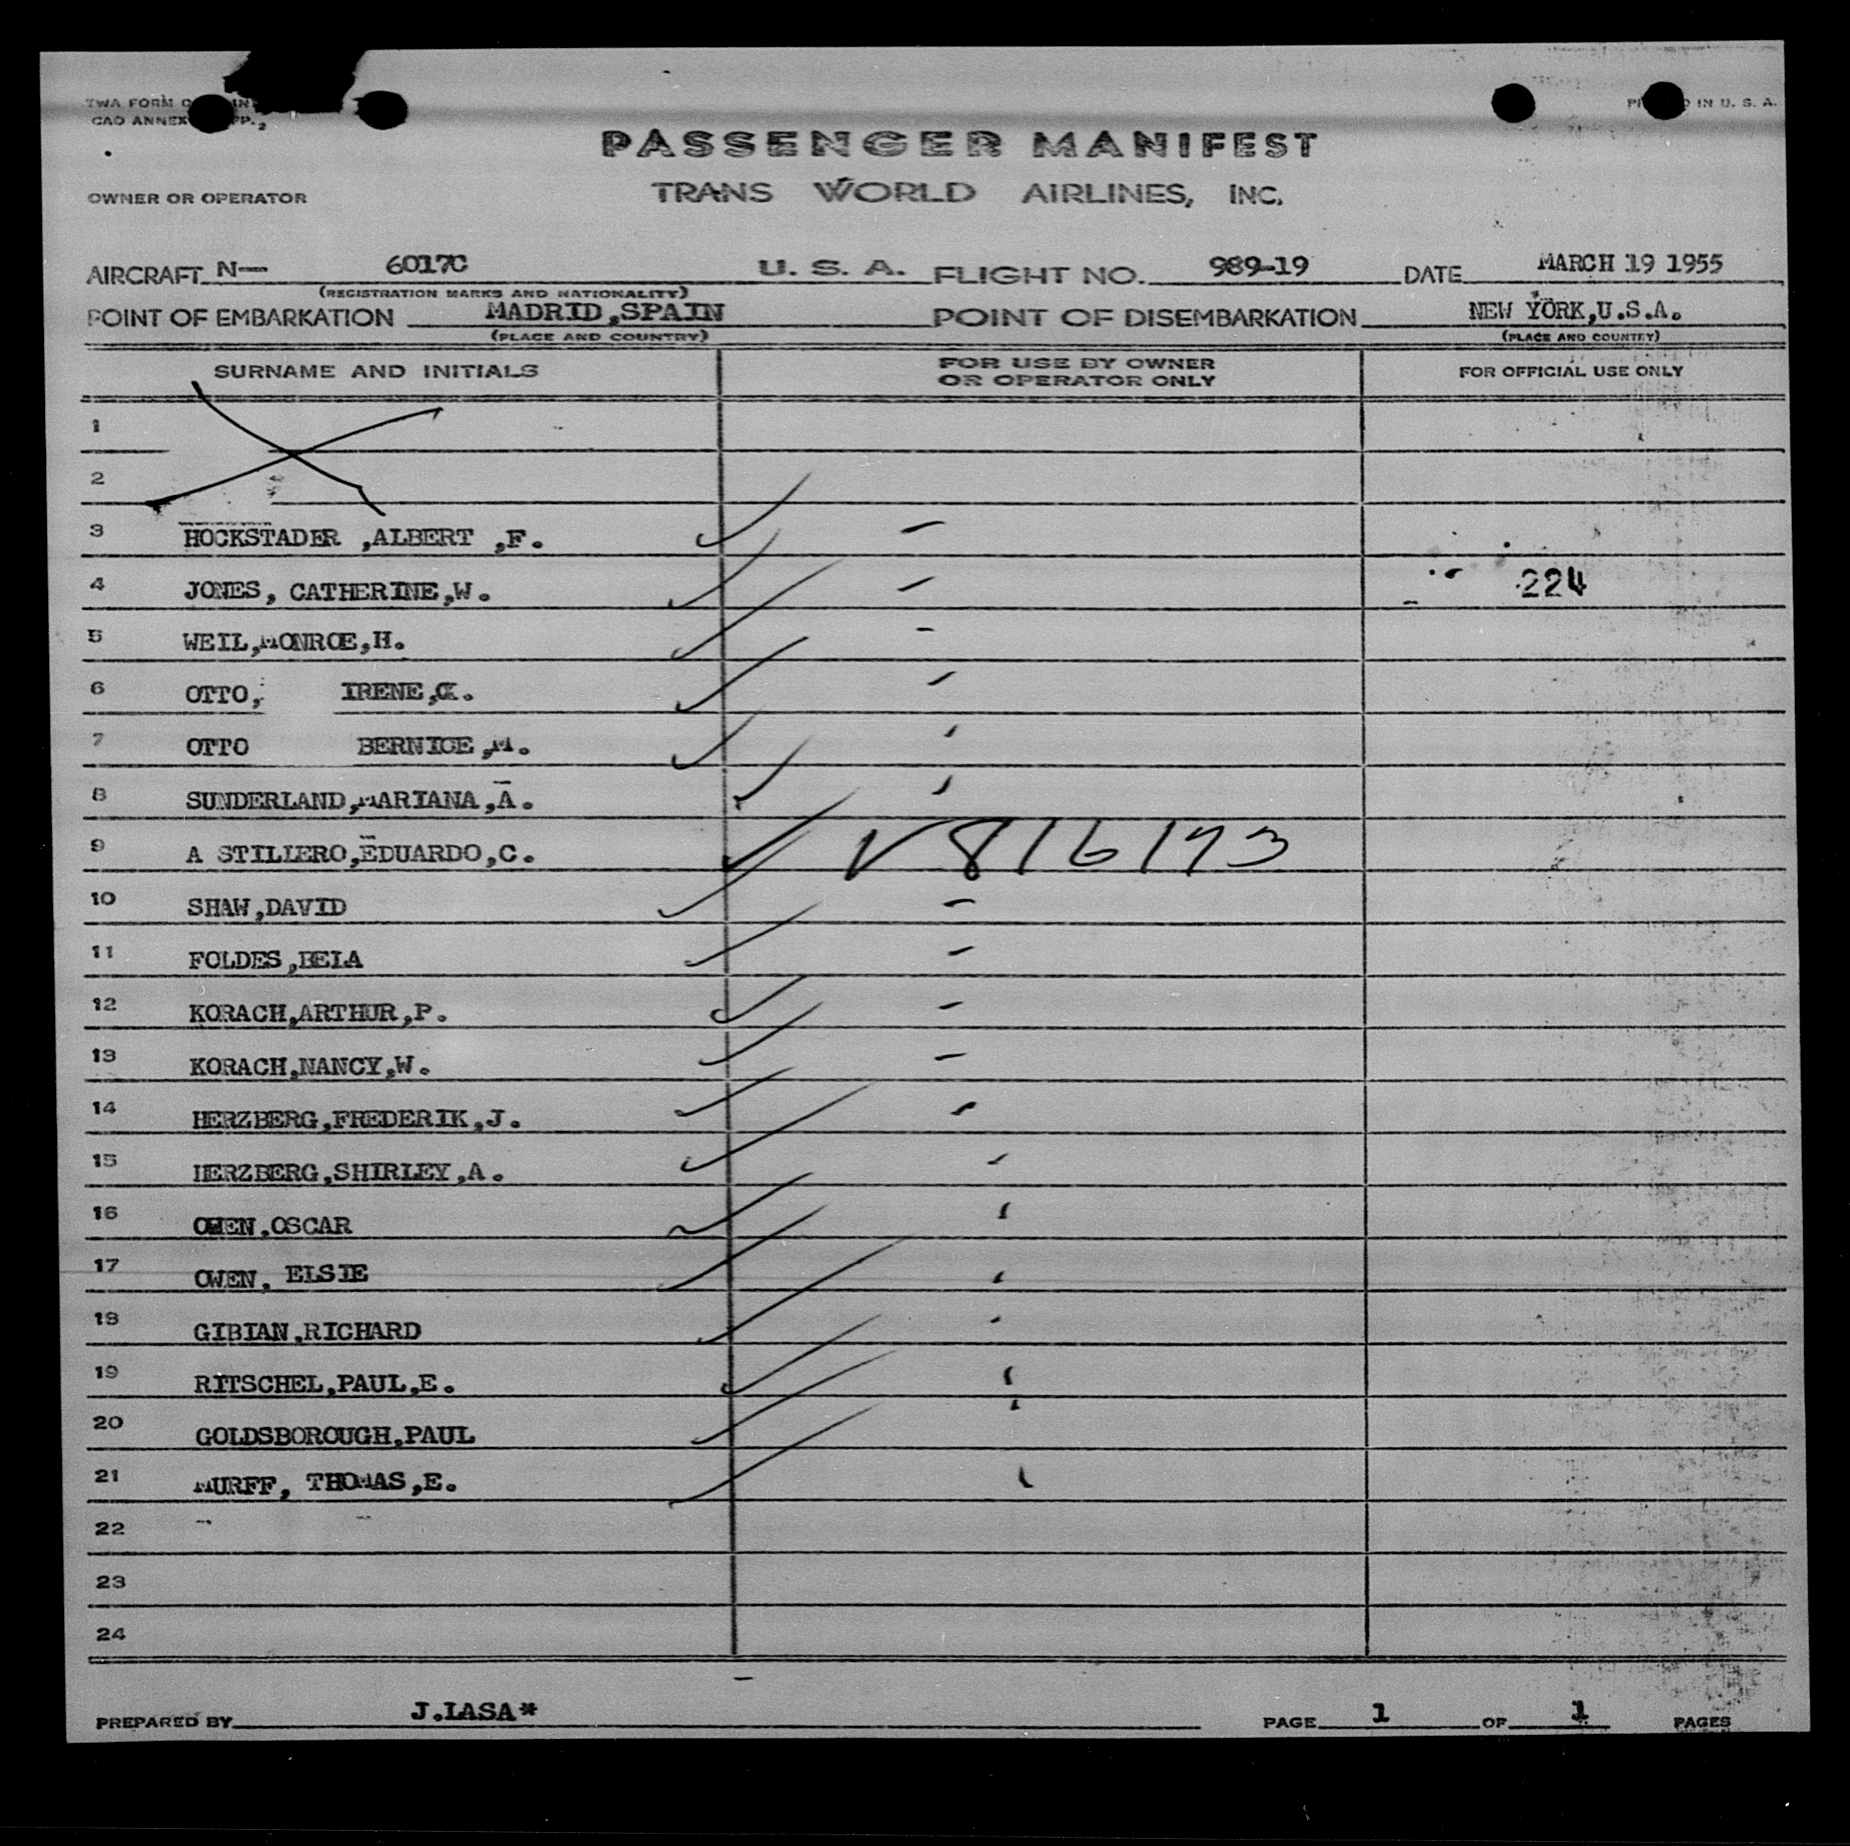 TWA FORM
CAO ANNEX
IN U. S. A.
PASSENGER MANIFEST
OWNER OR OPERATOR TRANS WORLD AIRLINES, INC.
AIRCRAFT N— 6017C U. S. A. FLIGHT NO. 989-19 DATE MARCH 19 1955
(REGISTRATION MARKS AND NATIONALITY)
POINT OF EMBARKATION MADRID,SPAIN POINT OF DISEMBARKATION NEW YORK,U.S.A.
(PLACE AND COUNTRY) (PLACE AND COUNTRY)
SURNAME AND INITIALS FOR USE BY OWNER OR OPERATOR ONLY FOR OFFICIAL USE ONLY
1
2
3 HOCKSTADER ,ALBERT ,F.
4 JONES, CATHERINE,W. 224
5 WEIL,MONROE,H.
6 OTTO, IRENE,
7 OTTO BERNICE,M.
8 SUNDERLAND,MARIANA,A.
9 A STILLERO,EDUARDO,C. V 816173
10 SHAW,DAVID
11 FOLDES,BELA
12 KORACH,ARTHUR,P.
13 KORACH,NANCY,W.
14 HERZBERG,FREDERIK,J.
15 HERZBERG,SHIRLEY,A.
16 OWEN,OSCAR
17 OWEN, ELSIE
18 GIBIAN,RICHARD
19 RITSCHEL,PAUL,E.
20 GOLDSBOROUGH,PAUL
21 MURFF, THOMAS,E.
22
23
24
PREPARED BY J.LASA* PAGE 1 OF 1 PAGES